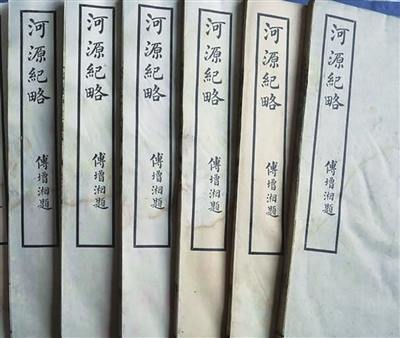 河源紀略
傅增湘題
河源紀略
傅增湘題
河源紀略
傅增湘題
河源紀略
傅增湘題
河源紀略
傅增湘題
河源紀略
傅增湘題